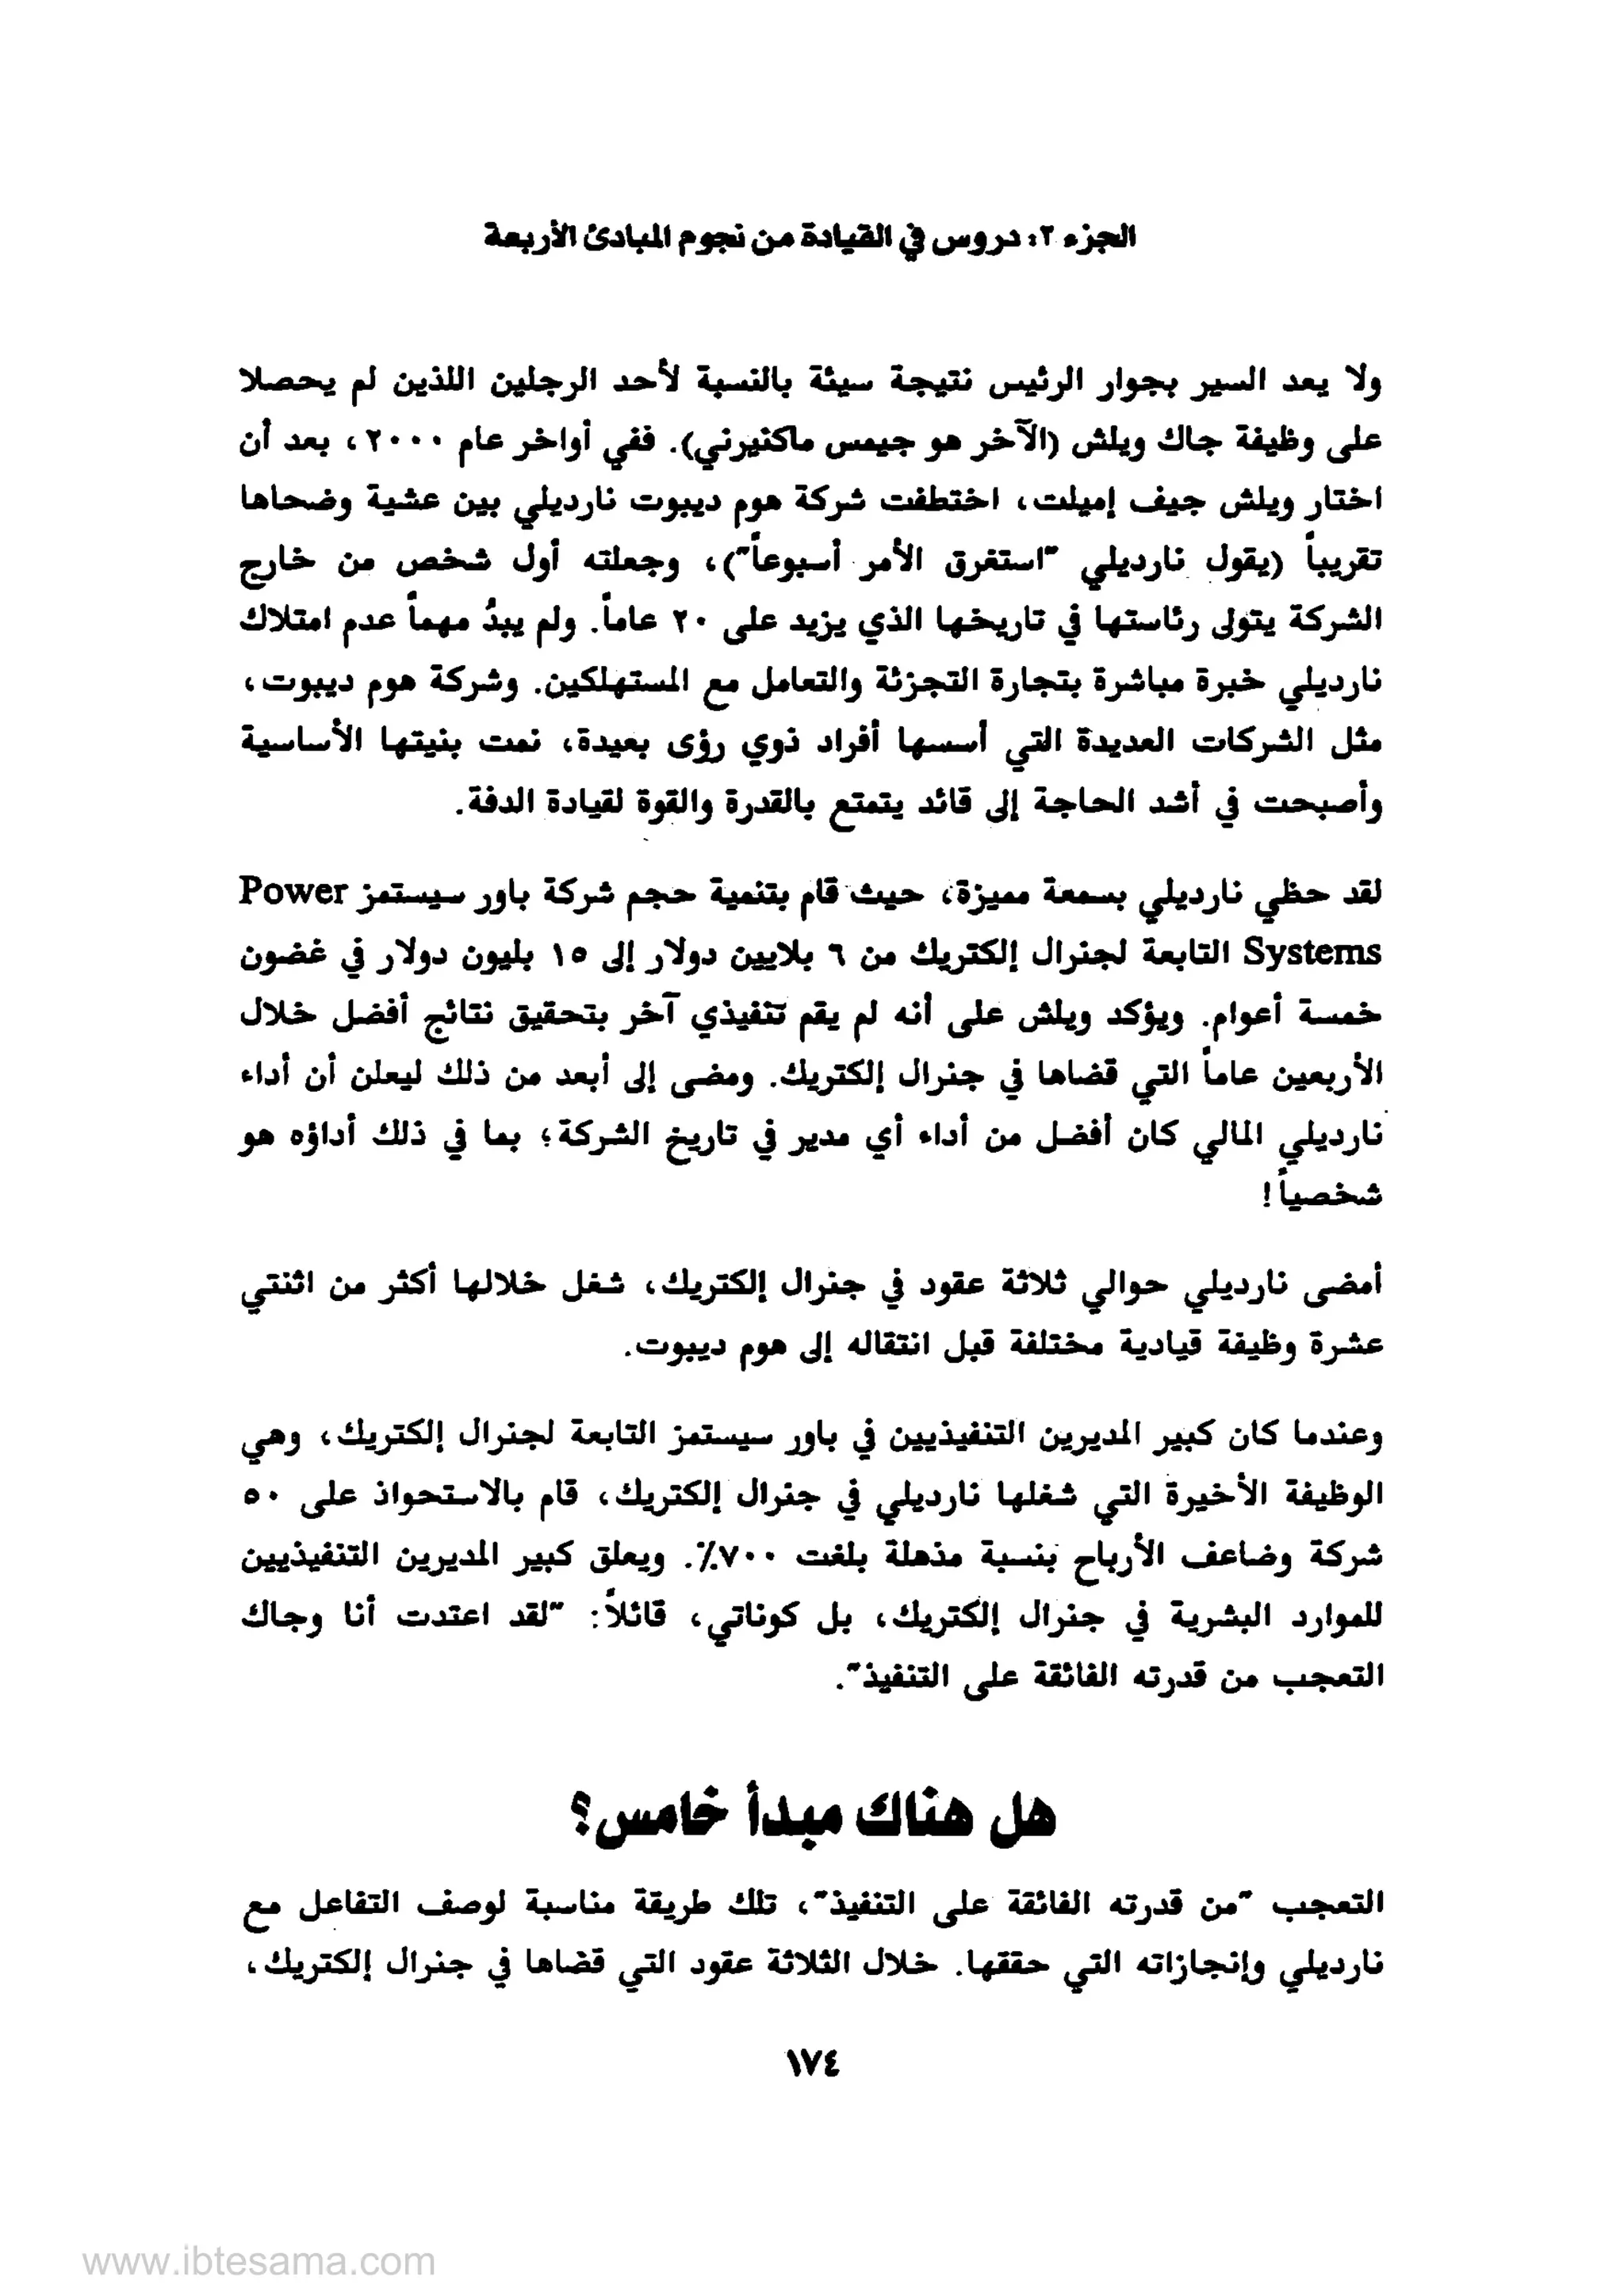 الجزء ٢: دروس في القيادة من نجوم المبادئ الأربعة
ولا يعد السير بجوار الرئيس نتيجة سيئة بالنسبة لأحد الرجلين اللذين لم يحصلا
على وظيفة جاك ويلش (الآخر هو جيمس ماكنيرني). ففي أواخر عام ٢٠٠٠، بعد أن
اختار ويلش جيف إميلت، اختطفت شركة هوم ديبوت نارديلي بين عشية وضحاها
تقريباً (يقول نارديلي "استغرق الأمر أسبوعاً")، وجعلته أول شخص من خارج
الشركة يتولى رئاستها في تاريخها الذي يزيد على ٢٠ عاماً. ولم يبدُ مهماً عدم امتلاك
نارديلي خبرة مباشرة بتجارة التجزئة والتعامل مع المستهلكين. وشركة هوم ديبوت،
مثل الشركات العديدة التي أسسها أفراد ذوي رؤى بعيدة، نمت بنيتها الأساسية
وأصبحت في أشد الحاجة إلى قائد يتمتع بالقدرة والقوة لقيادة الدفة.
لقد حظي نارديلي بسمعة مميزة، حيث قام بتنمية حجم شركة باور سيستمز Power
Systems التابعة لجنرال إلكتريك من ٦ بلايين دولار إلى ١٥ بليون دولار في غضون
خمسة أعوام. ويؤكد ويلش على أنه لم يقم تنفيذي آخر بتحقيق نتائج أفضل خلال
الأربعين عاماً التي قضاها في جنرال إلكتريك. ومضى إلى أبعد من ذلك ليعلن أن أداء
نارديلي المالي كان أفضل من أداء أي مدير في تاريخ الشركة؛ بما في ذلك أداؤه هو
شخصياً!
أمضى نارديلي حوالي ثلاثة عقود في جنرال إلكتريك، شغل خلالها أكثر من اثنتي
عشرة وظيفة قيادية مختلفة قبل انتقاله إلى هوم ديبوت.
وعندما كان كبير المديرين التنفيذيين في باور سيستمز التابعة لجنرال إلكتريك، وهي
الوظيفة الأخيرة التي شغلها نارديلي في جنرال إلكتريك، قام بالاستحواذ على ٥٠
شركة وضاعف الأرباح بنسبة مذهلة بلغت ٧٠٠٪. ويعلق كبير المديرين التنفيذيين
للموارد البشرية في جنرال إلكتريك، بل كوناتي، قائلاً: "لقد اعتدت أنا وجاك
التعجب من قدرته الفائقة على التنفيذ".
هل هناك مبدأ خامس؟
التعجب "من قدرته الفائقة على التنفيذ"، تلك طريقة مناسبة لوصف التفاعل مع
نارديلي وإنجازاته التي حققها. خلال الثلاثة عقود التي قضاها في جنرال إلكتريك،
١٧٤
www.ibtesama.com